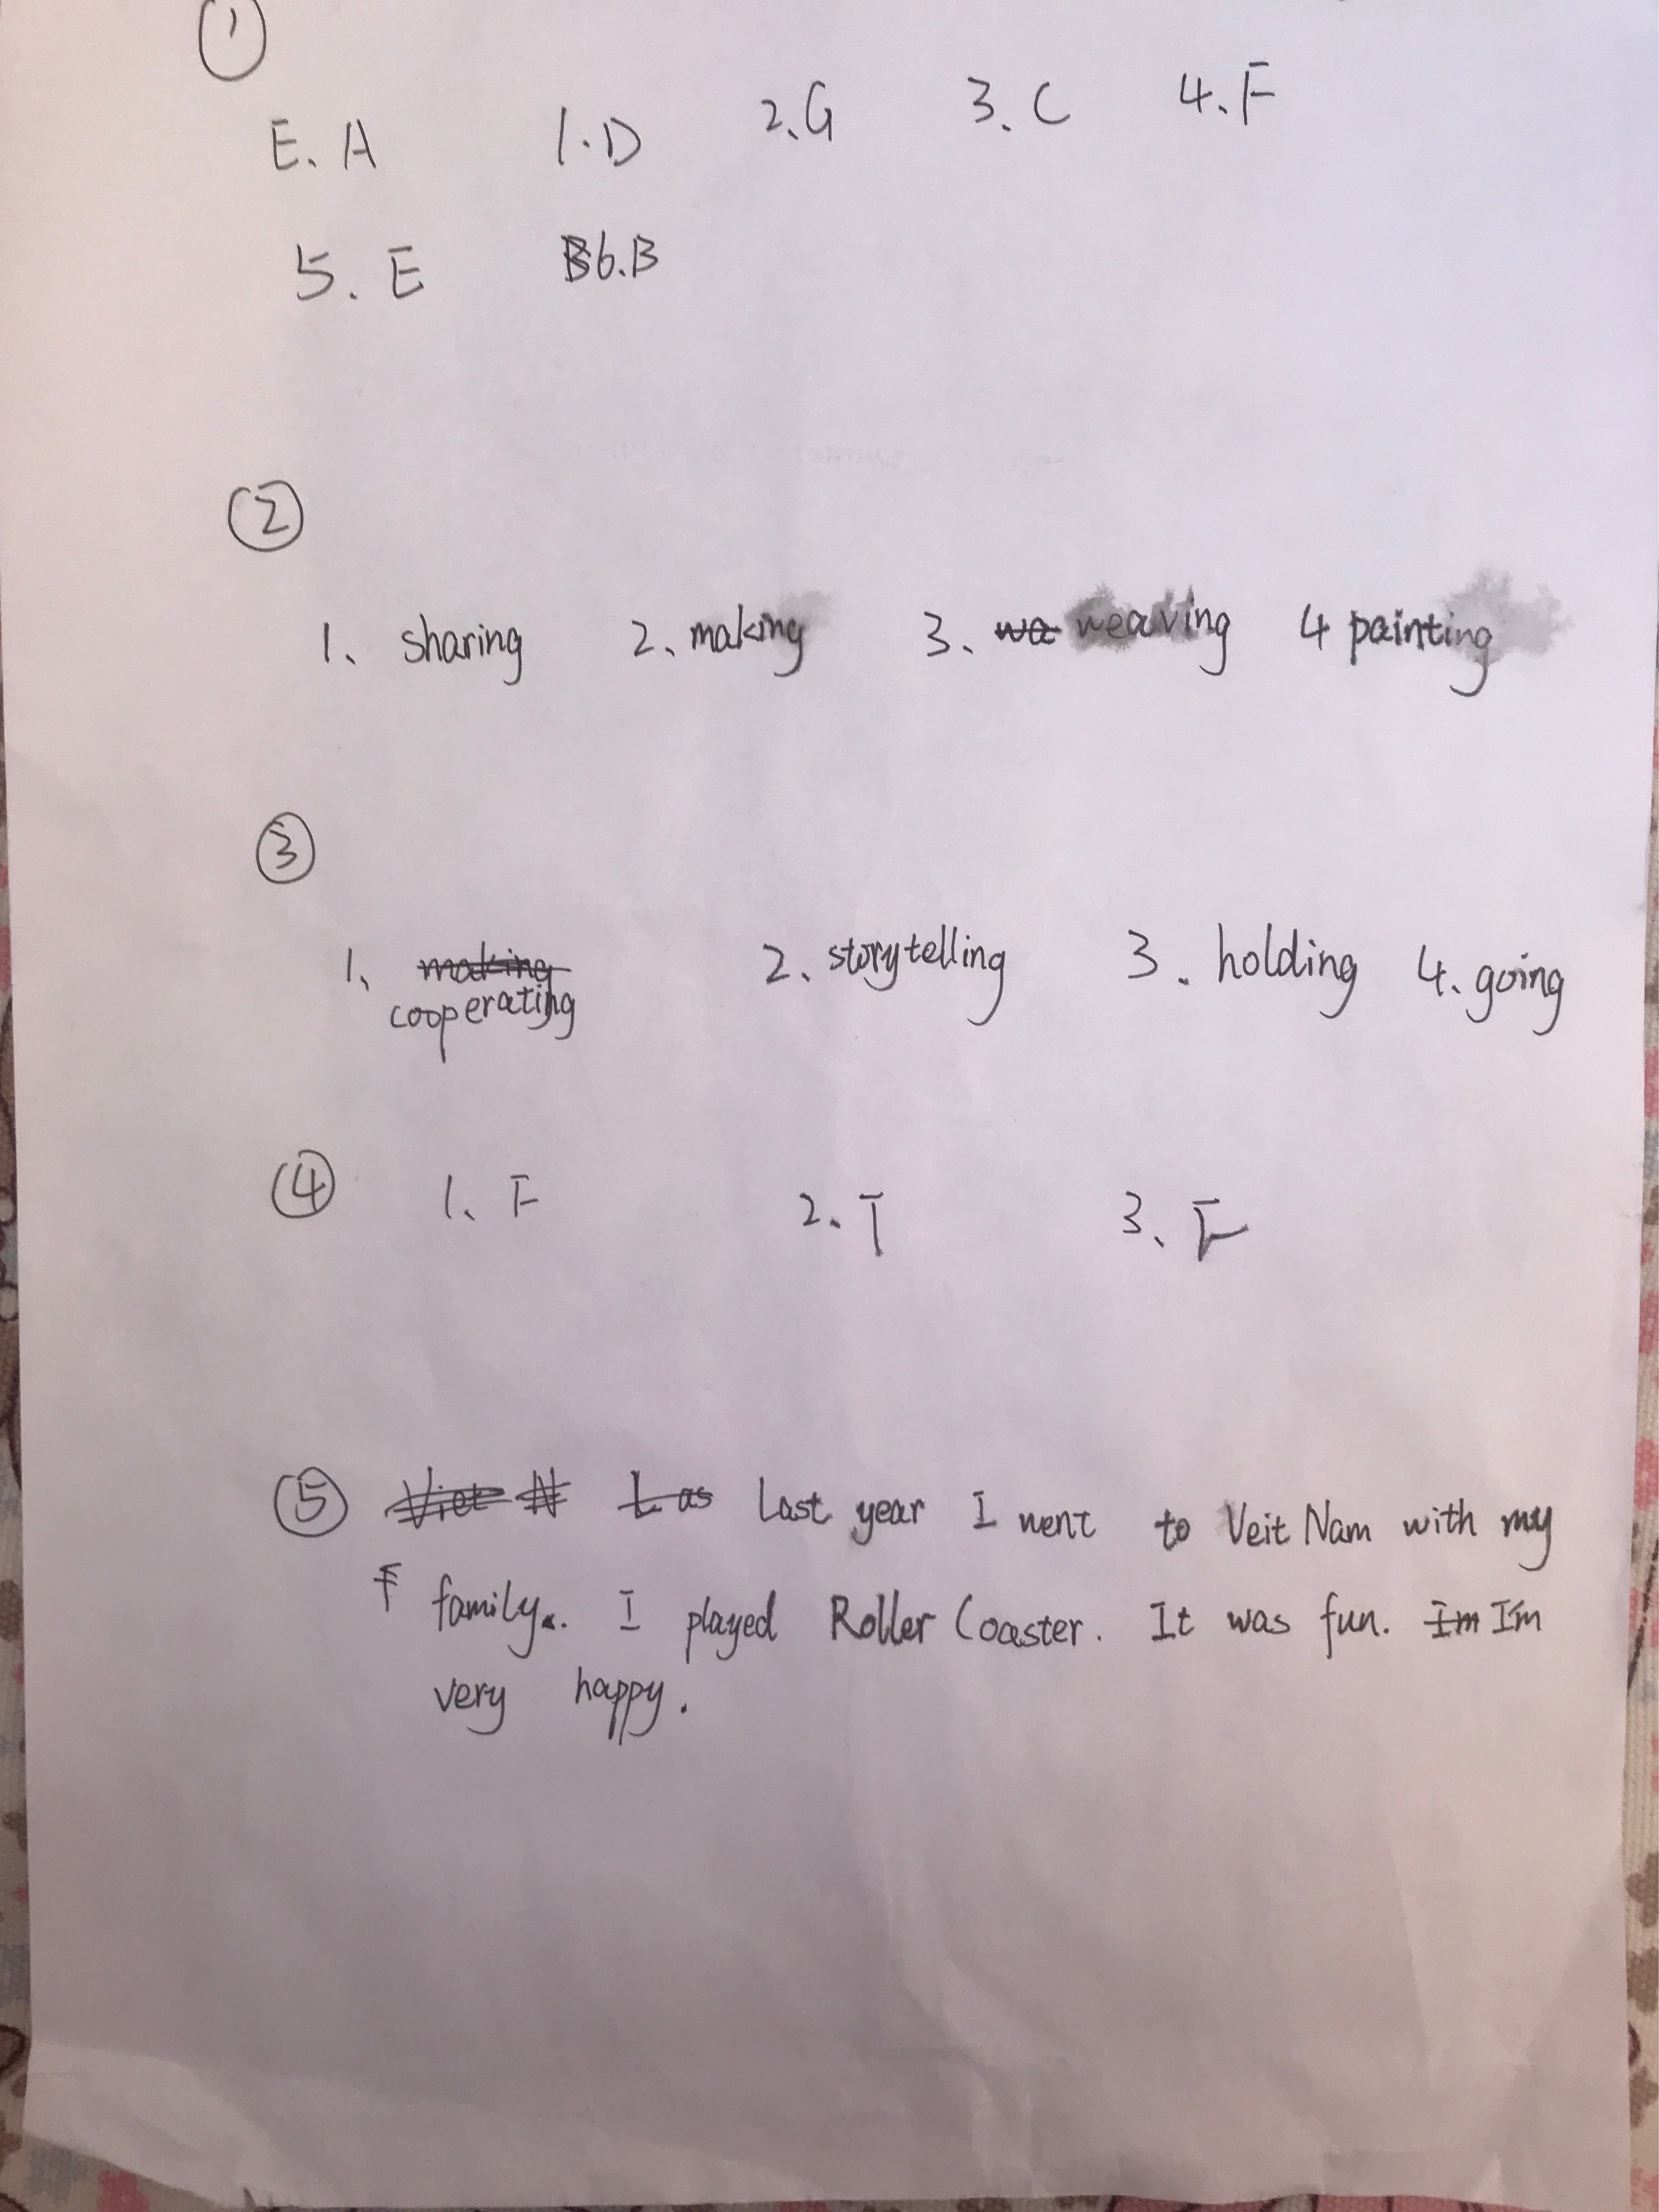 ①
E. A 1. D 2. G 3. C 4. F
5. E 6. B
②
1. sharing 2. making 3. weaving 4 painting
③
1. cooperating 2. storytelling 3. holding 4. going
④ 1. F 2. T 3. F
⑤ Last year I went to Veit Nam with my
family. I played Roller Coaster. It was fun. I'm
very happy.